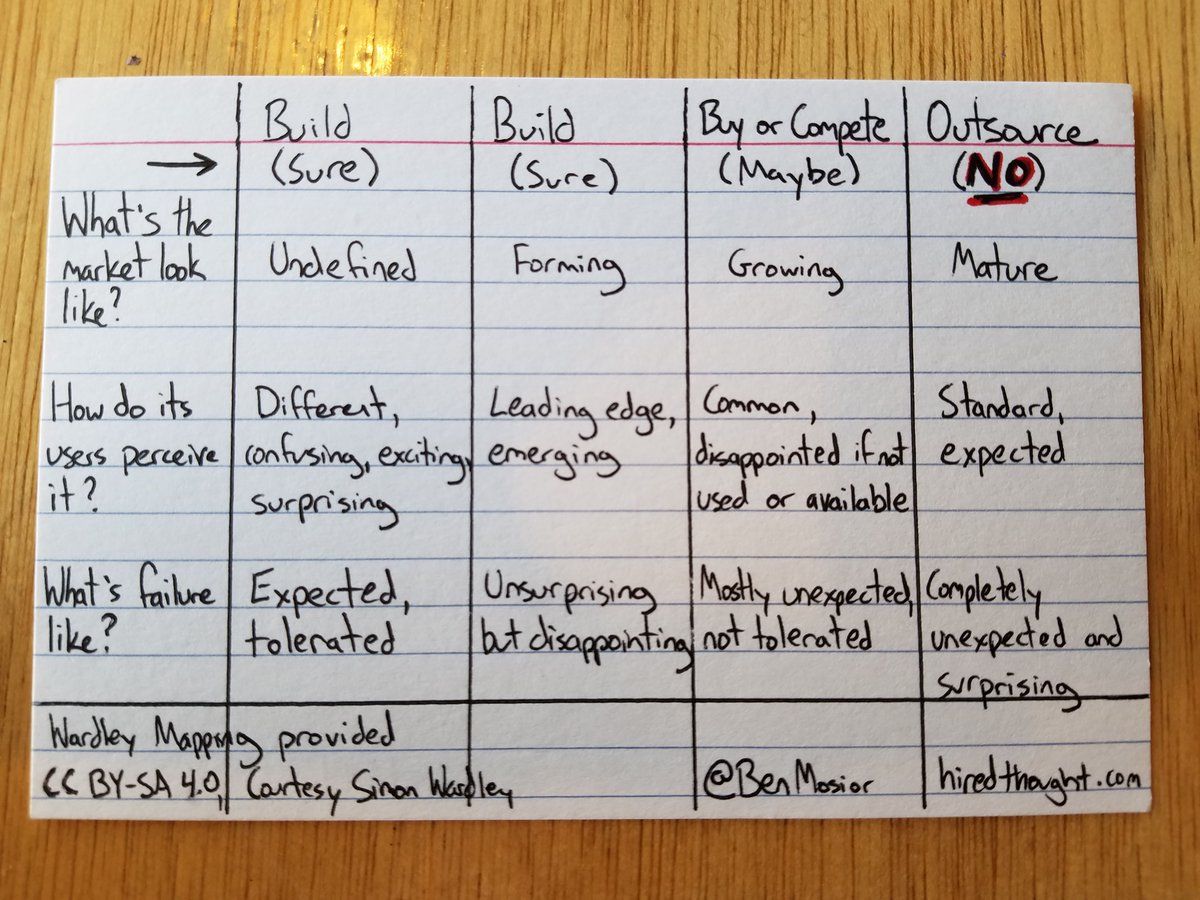 Build
(Sure)
Build
(Sure)
Buy or Compete
(Maybe)
Outsource
(NO)
What's the
market look
like?
Undefined
Forming
Growing
Mature
How do its
users perceive
it?
Different,
confusing, exciting,
surprising
Leading edge,
emerging
Common,
disappointed if not
used or available
Standard,
expected
What's failure
like?
Expected,
tolerated
Unsurprising
but disappointing
Mostly unexpected,
not tolerated
Completely
unexpected and
surprising
Wardley Mapping provided
CC BY-SA 4.0, Courtesy Simon Wardley
@BenMosior
hiredthought.com